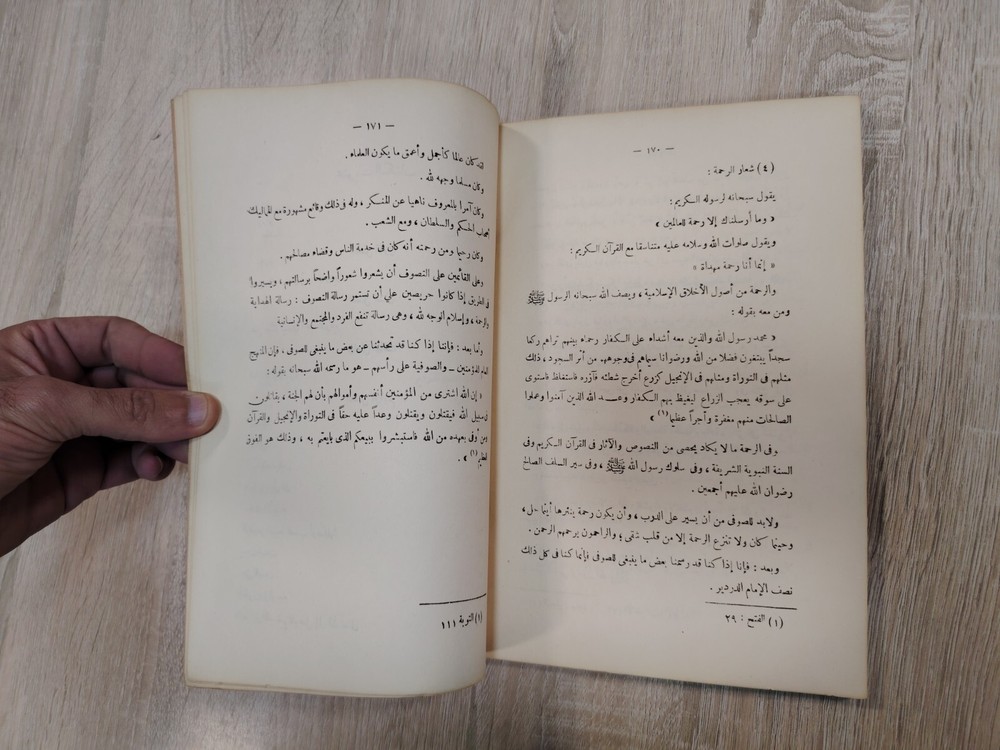 — ١٧٠ —
(٤) شعار الرحمة :
يقول سبحانه لرسوله الكريم :
« وما أرسلناك إلا رحمة للعالمين »
ويقول صلوات الله وسلامه عليه متناسقا مع القرآن الكريم :
« إنما أنا رحمة مهداة »
والرحمة من أصول الأخلاق الإسلامية ، ويصف الله سبحانه الرسول ﷺ
ومن معه بقوله :
« محمد رسول الله والذين معه أشداء على الكفار رحماء بينهم تراهم ركعا
سجداً يبتغون فضلا من الله ورضوانا سيماهم فى وجوههم من أثر السجود ، ذلك
مثلهم فى التوراة ومثلهم فى الإنجيل كزرع أخرج شطئه فآزره فاستغلظ فاستوى
على سوقه يعجب الزراع ليغيظ بهم الكفار وعد الله الذين آمنوا وعملوا
الصالحات منهم مغفرة وأجراً عظيما(١) »
وفى الرحمة ما لا يكاد يحصى من النصوص والآثار فى القرآن الكريم وفى
السنة النبوية الشريفة ، وفى سلوك رسول الله ﷺ ، وفى سير السلف الصالح
رضوان الله عليهم أجمعين .
ولابد للصوفى من أن يسير على الدرب ، وأن يكون رحمة ينثرها أينما حل ،
وحيثما كان ولا تنزع الرحمة إلا من قلب شقى ؛ والراحمون يرحمهم الرحمن .
وبعد : فإنا إذا كنا قد رسمنا بعض ما ينبغى للصوفى فإنما كنا فى كل ذلك
نصف الإمام الدردير .
(١) الفتح : ٢٩
— ١٧١ —
كان عالما كأجمل وأعمق ما يكون العلماء .
وكان مسلما وجهه لله .
وكان آمرا بالمعروف ناهيا عن المنكر ، وله فى ذلك وقائع مشهورة مع المماليك
أصحاب الحكم والسلطان ، ومع الشعب .
وكان رحيما ومن رحمته أنه كان فى خدمة الناس وقضاء مصالحهم .
وعلى القائمين على التصوف أن يشعروا شعوراً واضحاً برسالتهم ، ويسيروا
فى الطريق إذا كانوا حريصين على أن تستمر رسالة التصوف : رسالة الهداية
والرحمة ، وإسلام الوجه لله ، وهى رسالة تنفع الفرد والمجتمع والإنسانية
وأما بعد : فإننا إذا كنا قد تحدثنا عن بعض ما ينبغى للصوفى ، فإن المنهج
العام للمؤمنين – والصوفية على رأسهم – هو ما رسمه الله سبحانه بقوله :
« إن الله اشترى من المؤمنين أنفسهم وأموالهم بأن لهم الجنة ، يقاتلون
فى سبيل الله فيقتلون ويقتلون وعداً عليه حقاً فى التوراة والإنجيل والقرآن
ومن أوفى بعهده من الله فاستبشروا ببيعكم الذى بايعتم به ، وذلك هو الفوز
العظيم(١) » .
(١) التوبة ١١١